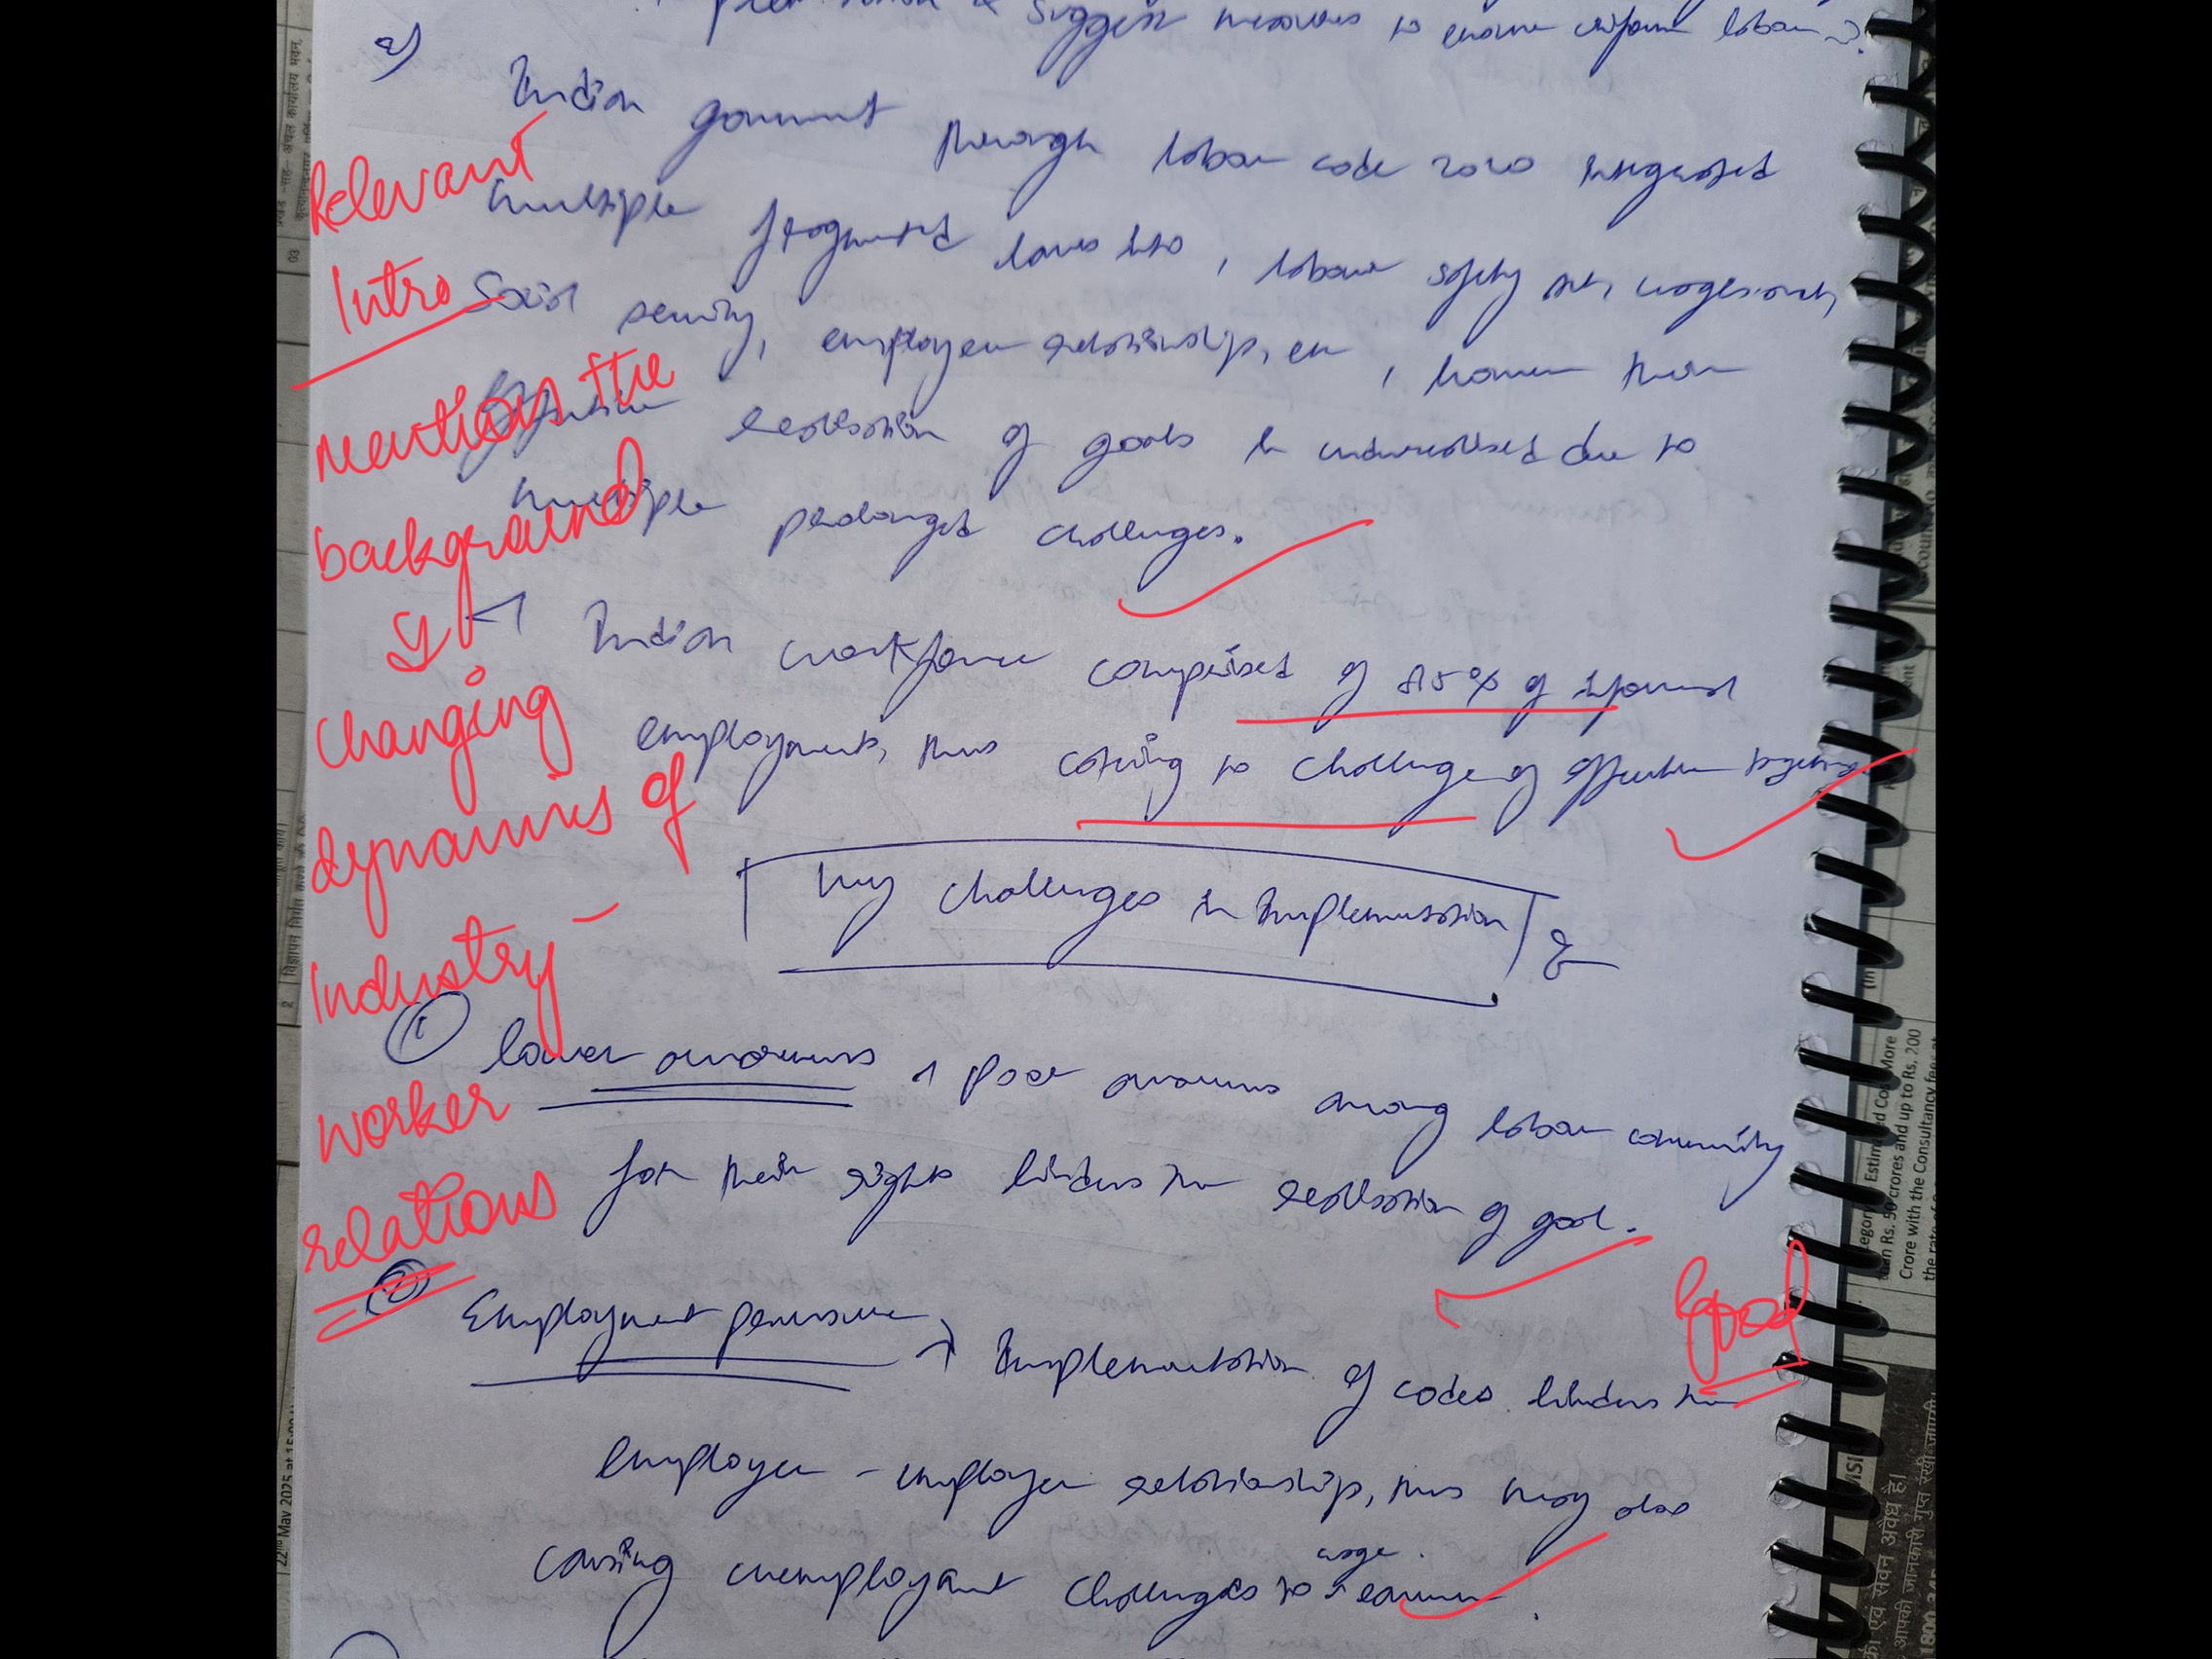 & suggest measures to ensure uniform labour
2)
Indian government through labour code 2020 integrated
multiple fragmented laws into, labour safety net, wages
Social security, employee relationship, etc, however
effective realisation of goals is underutilised due to
multiple prolonged challenges.
Indian workforce comprised of 85% of informal
employment, thus causing to challenge of effective targeting
key challenges in Implementation
①
lower awareness poor awareness among labour community
for their rights hinders the realisation of goal.
②
Employment → Implementation of codes hinders the
employer - employee relationship, thus may also
causing unemployment challenges to wage earner.
Relevant
Intro
mention the
background
changing
dynamics of
Industry -
worker
relations
Good
More
than Rs. 50 crores and up to Rs. 200
Crore with the Consultancy fee at
22nd May 2025 at 15:00